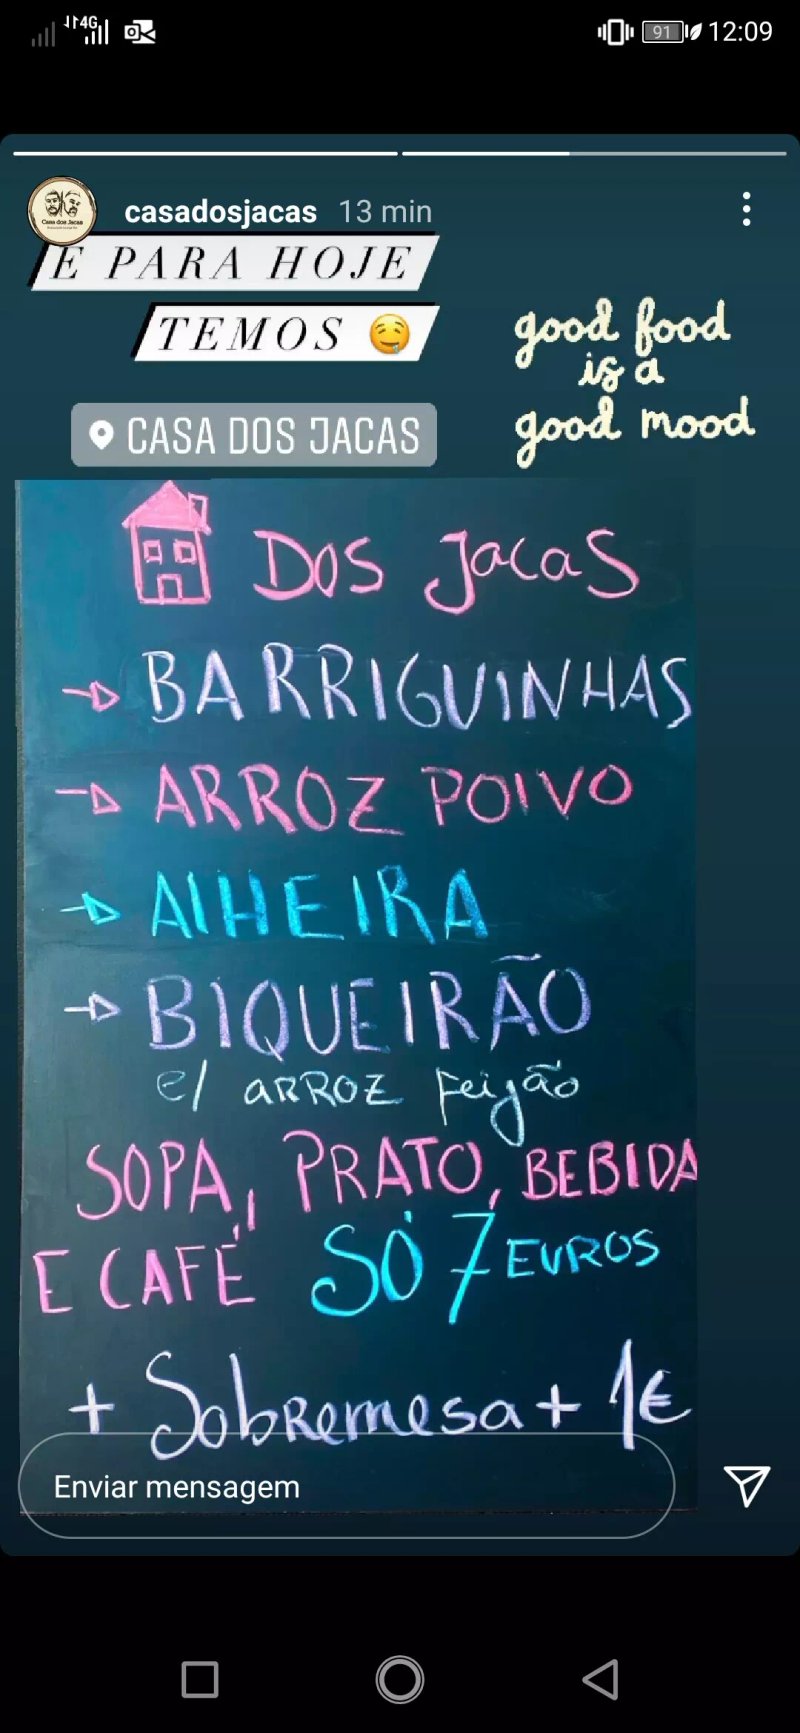 4G
91
12:09
casadosjacas 13 min
Casa dos Jacas
E PARA HOJE
TEMOS
good food
is a
good mood
CASA DOS JACAS
DOS JacaS
BARRIGUINHAS
ARROZ POLVO
AlHEIRA
BIQUEIRÃO
c/ ARROZ Feijão
SOPA, PRATO, BEBIDA
E CAFÉ SÓ 7 EUROS
+ SobRemesa + 1€
Enviar mensagem